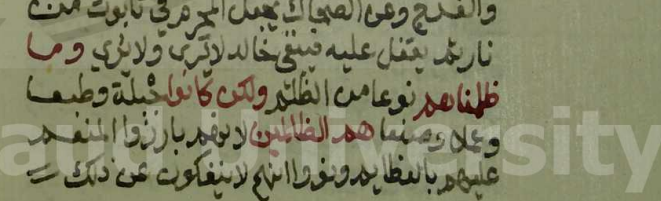 والفدج وعن الضحاك يجعل المجرم في تابوت من
نار ثم يقفل عليه فيبقى خالد لا يرى ولا يرى وما
ظلمناهم نوعا من الظلم ولكن كانوا جبلة وطبعا
وعملا وصنعا هم الظالمين لانهم بارزوا المنعم
عليهم بالعظايم ونووا انهم لا ينفكون عن ذلك
aud University